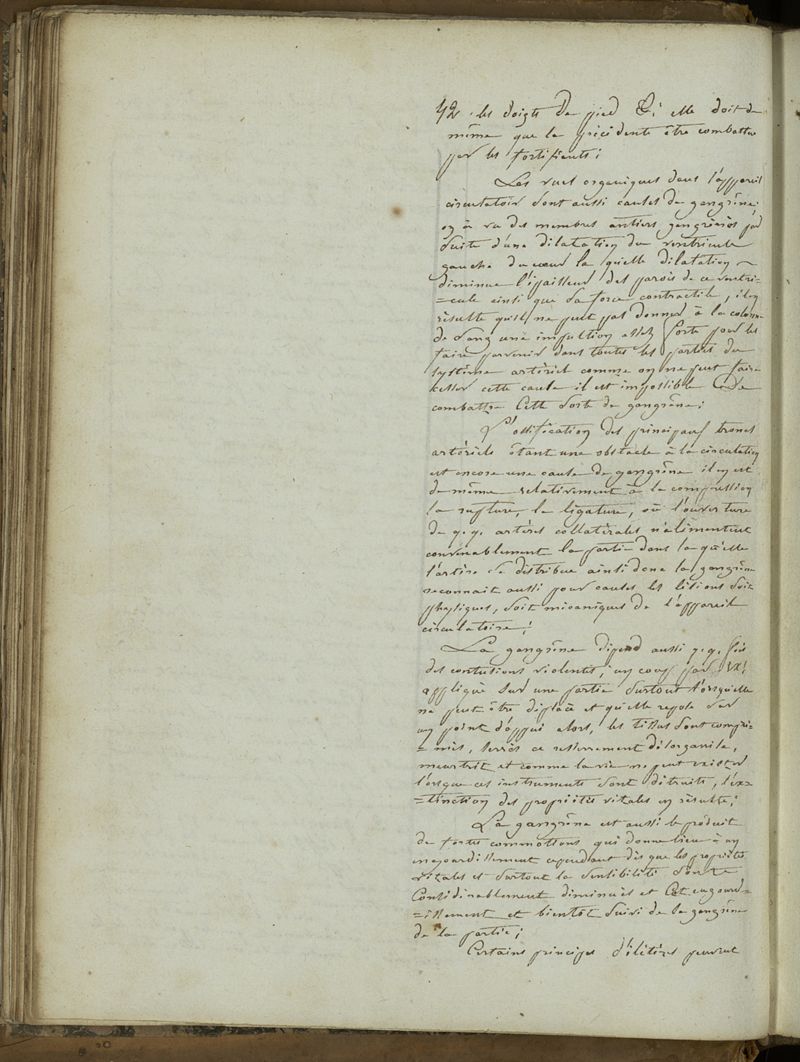 42 les doigts de pied &; elle doit de
même que la précédente être combattue
par les fortifients;
Les vues organiques dans l'appareil
circulatoir sont aussi causes de gangrène.
on à vu des membres entiers gangrènés par
suite d'une dilatation du ventricule
gauche du cœur la quelle dilatation
diminue l'épaisseur des parois de ce ventri-
=cule ainsi que sa force contractile, il en
résulte qu'il ne peut pas donner à la colonne
de sang une impultion assez forte pour les
faire parvenir dans toutes les parties du
système artériel comme on ne peut faire
cesser cette cause il est impossible de
combattre cette sorte de gangrène;
L'ossification des principaux troncs
artériels étant une obstacle à la circulation
est encore une cause de gangrène il en est
de même relativement à la compression
la rupture, la ligature, où l'ouverture
de q.q. artères collatérales n'alimentent
convenablement la partie dans la qu'elle
l'artère se distribue ainsi donc la gangrène
reconnait aussi pour causes les lésions soit
physiques, soit mécaniques de l'appareil
circulatoire;
La gangrène dépend aussi q.q. fois
des contusions violentes, un coup par ex:
appliqué sur une partie surtout l'orsqu'elle
ne peut être déplacé et qu'elle repose sur
un point d'appui alors, les tissus sont compri-
=més, serrés ce resserrement désorganise,
meurtrit et comme la vie ne peut exister
l'orsque ces instruments sont détruits, l'ex-
=tinction des propriétés vitales en résulte;
La gangrène est aussi le produit
de fortes commotions qui donne lieu à un
engourdissement cependant dès que les propriétés
vitales et surtout la sensibilité sont
considérablement diminués et cet engourd-
=issement est bientôt suivi de la gangrène
de la partie;
Certains principes délétères peuvent